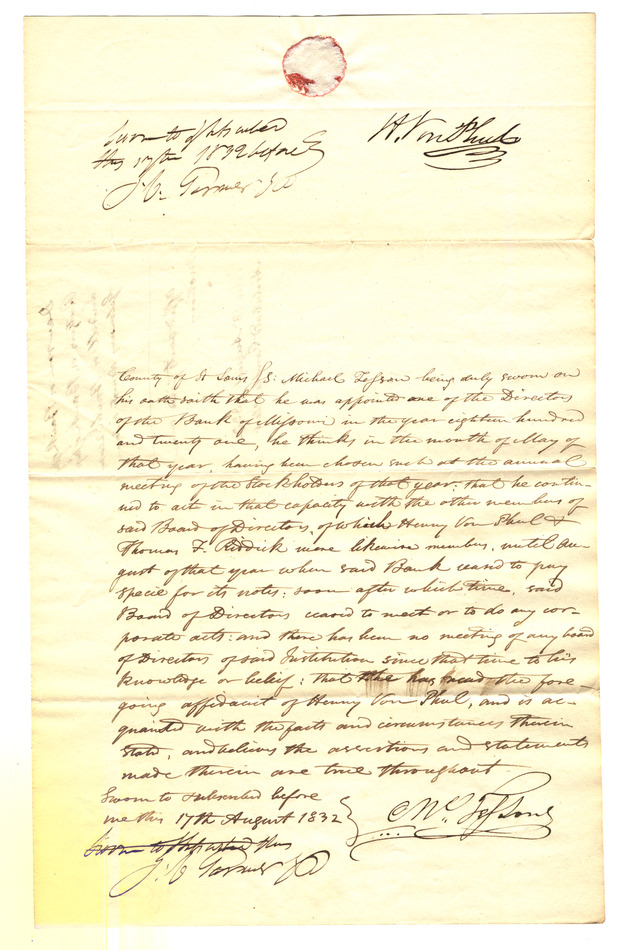 Sworn to & subscribed
this 17th 1832 before
H. Von Phul
County of St Louis Ss: Michael Tesson being duly sworn on
his oath saith that he was appointed one of the Directors
of the Bank of Missouri in the year eighteen hundred
and twenty one, he thinks in the month of May of
that year, having been chosen such at the annual
meeting of the Stockholders of that year: that he contin-
ued to act in that capacity with the other members of
said Board of Directors, of which Henry Von Phul &
Thomas F. Riddick were likewise members, until Au-
gust of that year when said Bank ceased to pay
specie for its notes: soon after which time, said
Board of Directors ceased to meet or to do any cor-
porate acts: and there has been no meeting of any board
of Directors of said Institution since that time to his
knowledge or belief: that he has read the fore
going affidavit of Henry Von Phul, and is ac-
quainted with the facts and circumstances therein
stated, and believes the assertions and statements
made therein are true throughout.
Sworn to subscribed before
me this 17th August 1832
Ml. Tesson